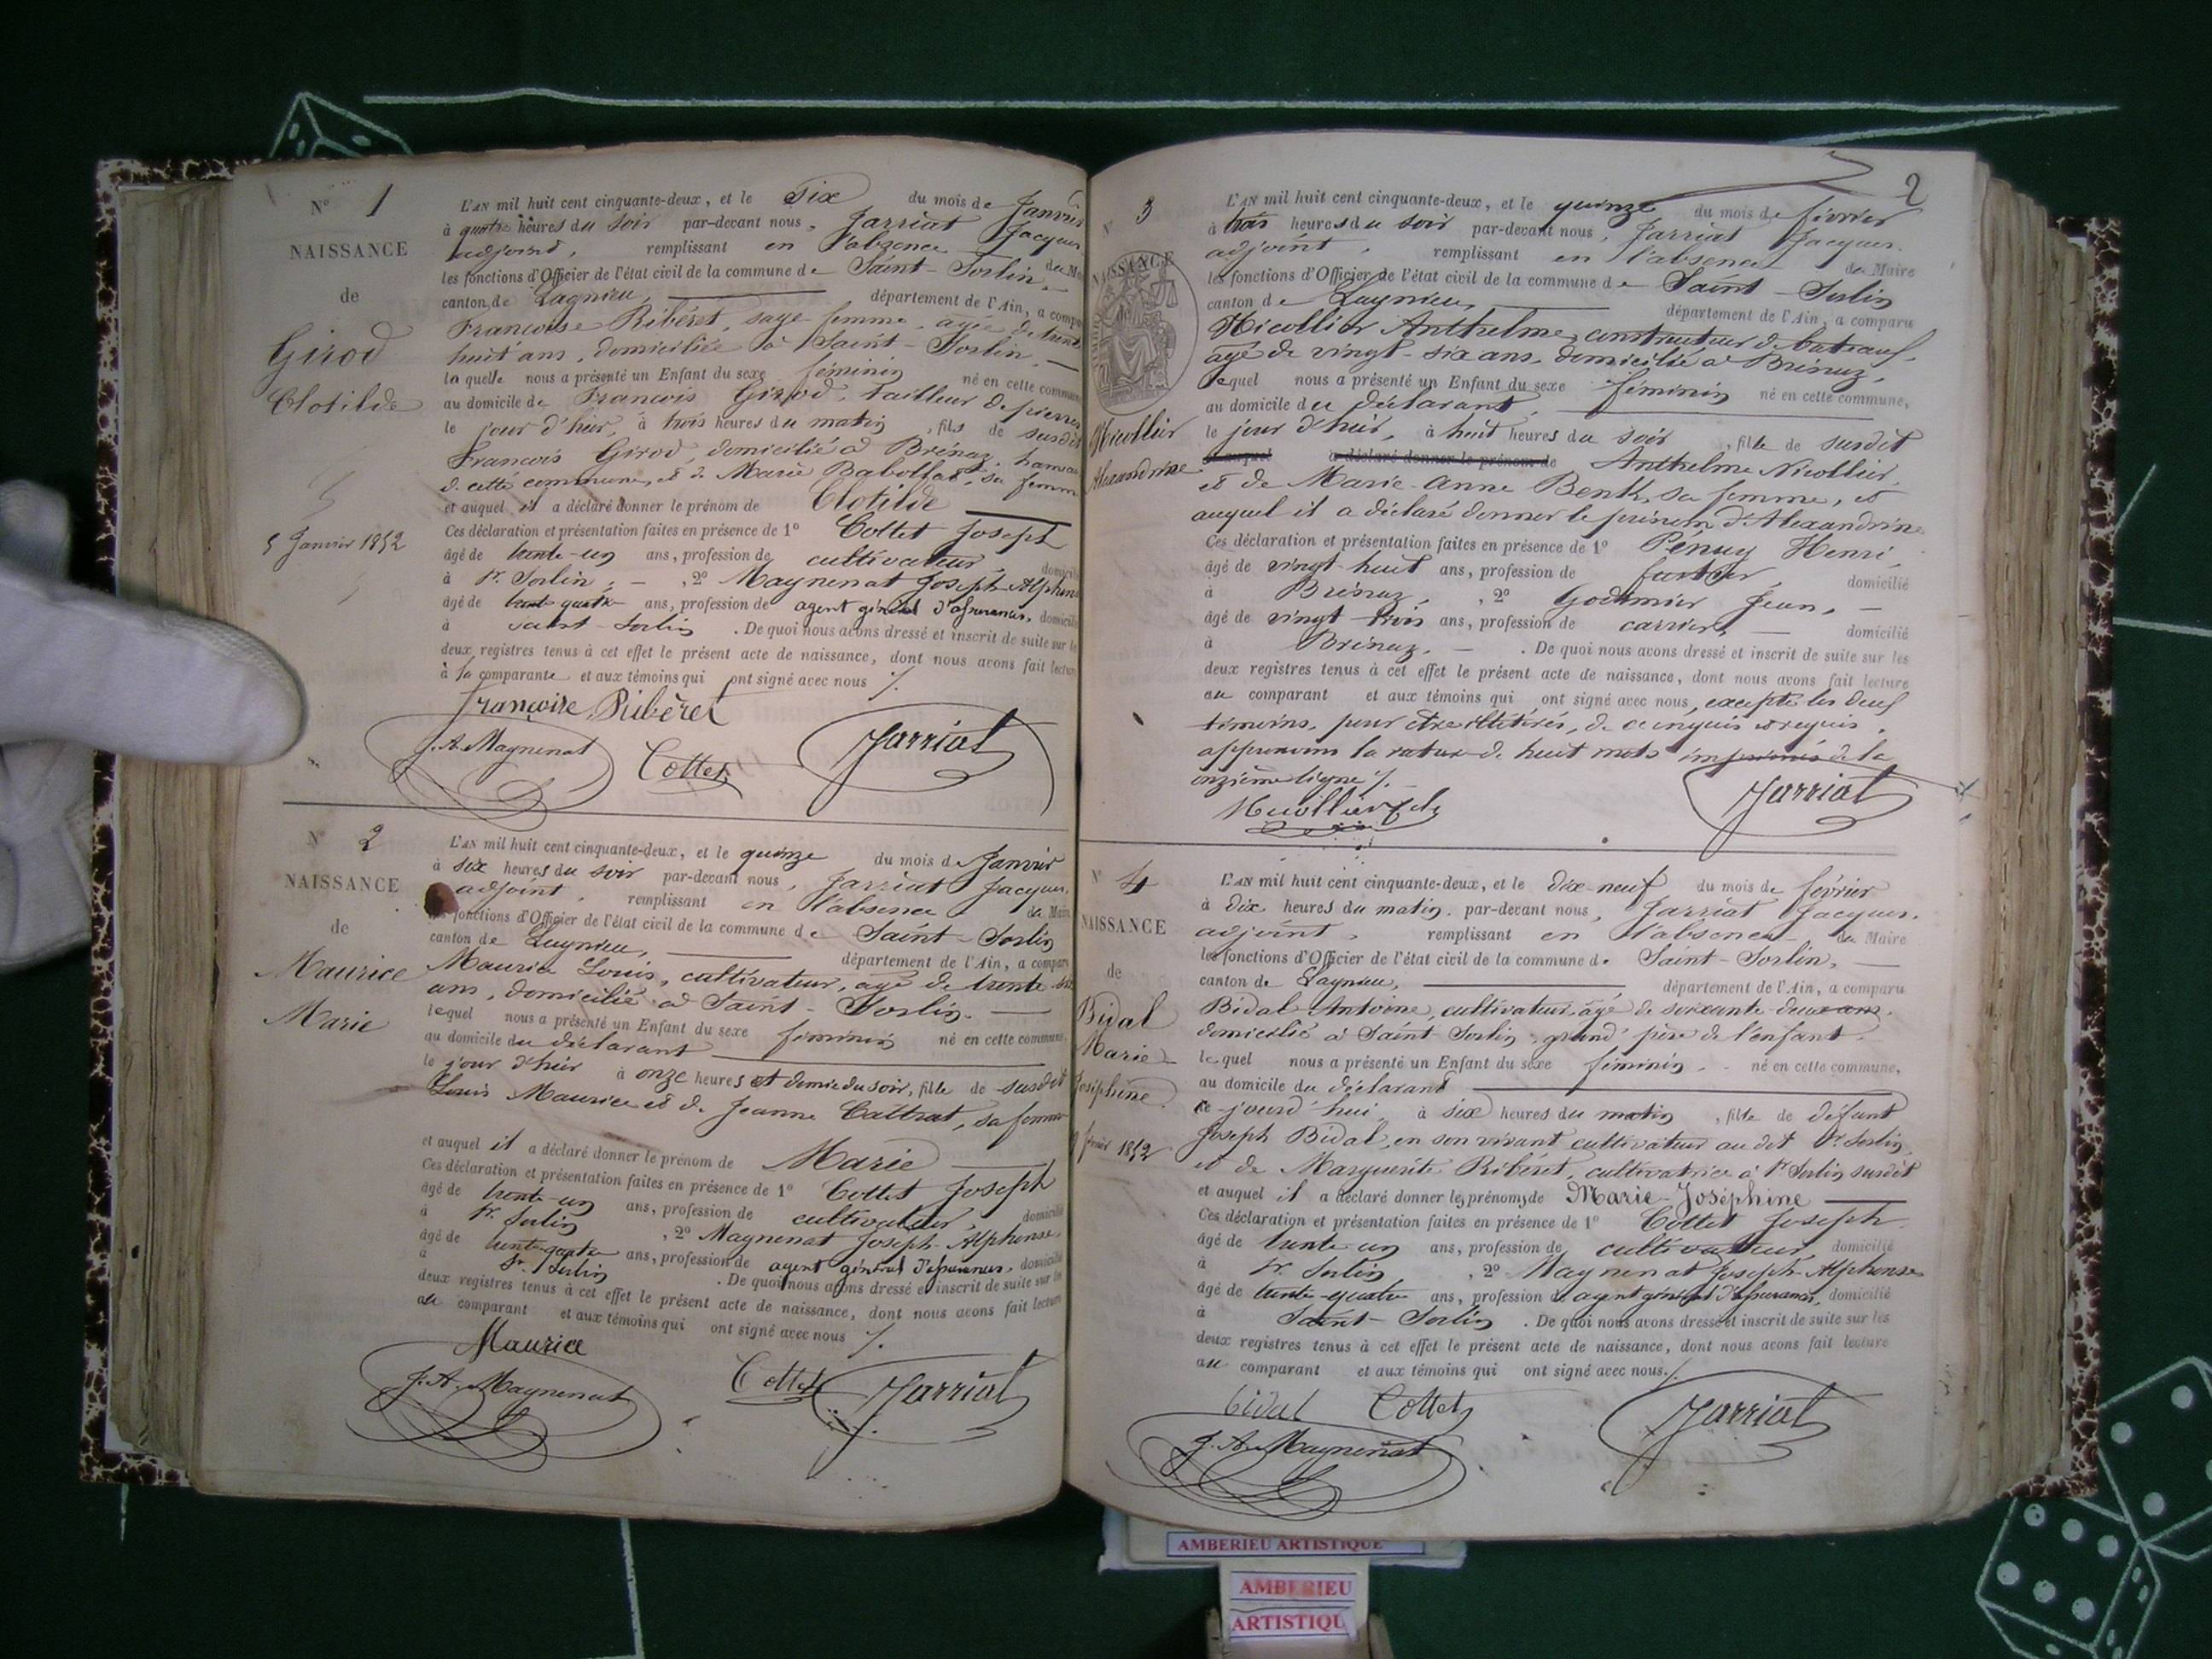 N° 1
NAISSANCE
de
Girod
Clotilde
5 Janvier 1852
L'AN mil huit cent cinquante-deux, et le Six du mois de Janvier
à quatre heures du soir par-devant nous, Jarriat Jacques
adjoint, remplissant en l'absence du Ma
les fonctions d'Officier de l'état civil de la commune de Saint-Sorlin,
canton de Lagnieu, département de l'Ain, a compa
Françoise Ribéret, sage femme, agée de trente
huit ans, domiciliée à Saint-Sorlin,
laquelle nous a présenté un Enfant du sexe féminin né en cette commune
au domicile de François Girod, tailleur de pierres
le jour d'hier, à trois heures du matin, fils de susdit
François Girod, domicilié à Brénaz, hameau
de cette commune, et de Marie Babollat, sa femme
et auquel il a déclaré donner le prénom de Clotilde
Ces déclaration et présentation faites en présence de 1° Cottet Joseph
âgé de trente-un ans, profession de cultivateur, domicilié
à St. Sorlin, 2° Magnenat Joseph-Alphonse
âgé de trente quatre ans, profession de agent général d'assurances, domicilié
à Saint-Sorlin. De quoi nous avons dressé et inscrit de suite sur les
deux registres tenus à cet effet le présent acte de naissance, dont nous avons fait lecture
à la comparante et aux témoins qui ont signé avec nous /.
Françoise Ribèret
J. A. Magnenat Cottet Jarriat
N° 2
NAISSANCE
de
Maurice
Marie
L'AN mil huit cent cinquante-deux, et le quinze du mois de Janvier
à six heures du soir par-devant nous, Jarriat Jacques,
adjoint, remplissant en l'absence du Maire
les fonctions d'Officier de l'état civil de la commune de Saint-Sorlin
canton de Lagnieu, département de l'Ain, a comparu
Maurice Louis, cultivateur, agé de trente six
ans, domicilié à Saint-Sorlin.
lequel nous a présenté un Enfant du sexe féminin né en cette commune,
au domicile du déclarant
le jour d'hier à onze heures et demie du soir, fille de susdit
Louis Maurice et de Jeanne Cattrat, sa femme
et auquel il a déclaré donner le prénom de Marie
Ces déclaration et présentation faites en présence de 1° Cottet Joseph
âgé de trente-un ans, profession de cultivateur, domicilié
à St. Sorlin, 2° Magnenat Joseph-Alphonse
âgé de trente-quatre ans, profession de agent général d'assurances, domicilié
à St. Sorlin. De quoi nous avons dressé et inscrit de suite sur les
deux registres tenus à cet effet le présent acte de naissance, dont nous avons fait lecture
au comparant et aux témoins qui ont signé avec nous /.
Maurice
J. A. Magnenat Cottet Jarriat
2
N° 3
NAISSANCE
de
Nicollier
Alexandrine
L'AN mil huit cent cinquante-deux, et le quinze du mois de février
à trois heures du soir par-devant nous, Jarriat Jacques.
adjoint, remplissant en l'absence du Maire
les fonctions d'Officier de l'état civil de la commune de Saint-Sorlin
canton de Lagnieu, département de l'Ain, a comparu
Nicollier Anthelme, constructeur de bateaux,
agé de vingt-six ans, domicilié à Brénaz,
lequel nous a présenté un Enfant du sexe féminin né en cette commune,
au domicile du déclarant,
le jour d'hier, à huit heures du soir, fille de susdit
et auquel a déclaré donner le prénom de Anthelme Nicollier,
et de Marie-Anne Benk, sa femme, et
auquel il a déclaré donner le prénom d'Alexandrine
Ces déclaration et présentation faites en présence de 1° Pénuy Henri,
âgé de vingt-huit ans, profession de domicilié
à Brénaz, 2° Godemier Jean,
âgé de vingt-trois ans, profession de carrier, domicilié
à Brénaz. De quoi nous avons dressé et inscrit de suite sur les
deux registres tenus à cet effet le présent acte de naissance, dont nous avons fait lecture
au comparant et aux témoins qui ont signé avec nous, excepté les deux
témoins, pour être illétérés, de ce enquis et requis.
approuvons la rature de huit mots imprimés de la
onzième ligne /.
Nicollier Jarriat
N° 4
NAISSANCE
de
Bidal
Marie
Joséphine
février 1852
L'AN mil huit cent cinquante-deux, et le dix-neuf du mois de février
à dix heures du matin, par-devant nous, Jarriat Jacques,
adjoint, remplissant en l'absence du Maire
les fonctions d'Officier de l'état civil de la commune de Saint-Sorlin,
canton de Lagnieu, département de l'Ain, a comparu
Bidal Antoine, cultivateur, âgé de soixante-deux ans,
domicilié à Saint Sorlin, grand' père de l'enfant.
lequel nous a présenté un Enfant du sexe féminin né en cette commune,
au domicile du déclarant
ce jourd'hui, à six heures du matin, fille de défunt
Joseph Bidal, en son vivant cultivateur au dit St. Sorlin,
et de Marguerite Ribéret, cultivatrice à St Sorlin susdit
et auquel il a déclaré donner les prénoms de Marie-Joséphine
Ces déclaration et présentation faites en présence de 1° Cottet Joseph
âgé de trente un ans, profession de cultivateur, domicilié
à St. Sorlin, 2° Magnenat Joseph-Alphonse
âgé de trente-quatre ans, profession d'agent général d'assurances, domicilié
à Saint-Sorlin. De quoi nous avons dressé et inscrit de suite sur les
deux registres tenus à cet effet le présent acte de naissance, dont nous avons fait lecture
au comparant et aux témoins qui ont signé avec nous. /.
bidal Cottet Jarriat
J. A. Magnenat
AMBERIEU ARTISTIQUE
AMBERIEU
ARTISTIQU